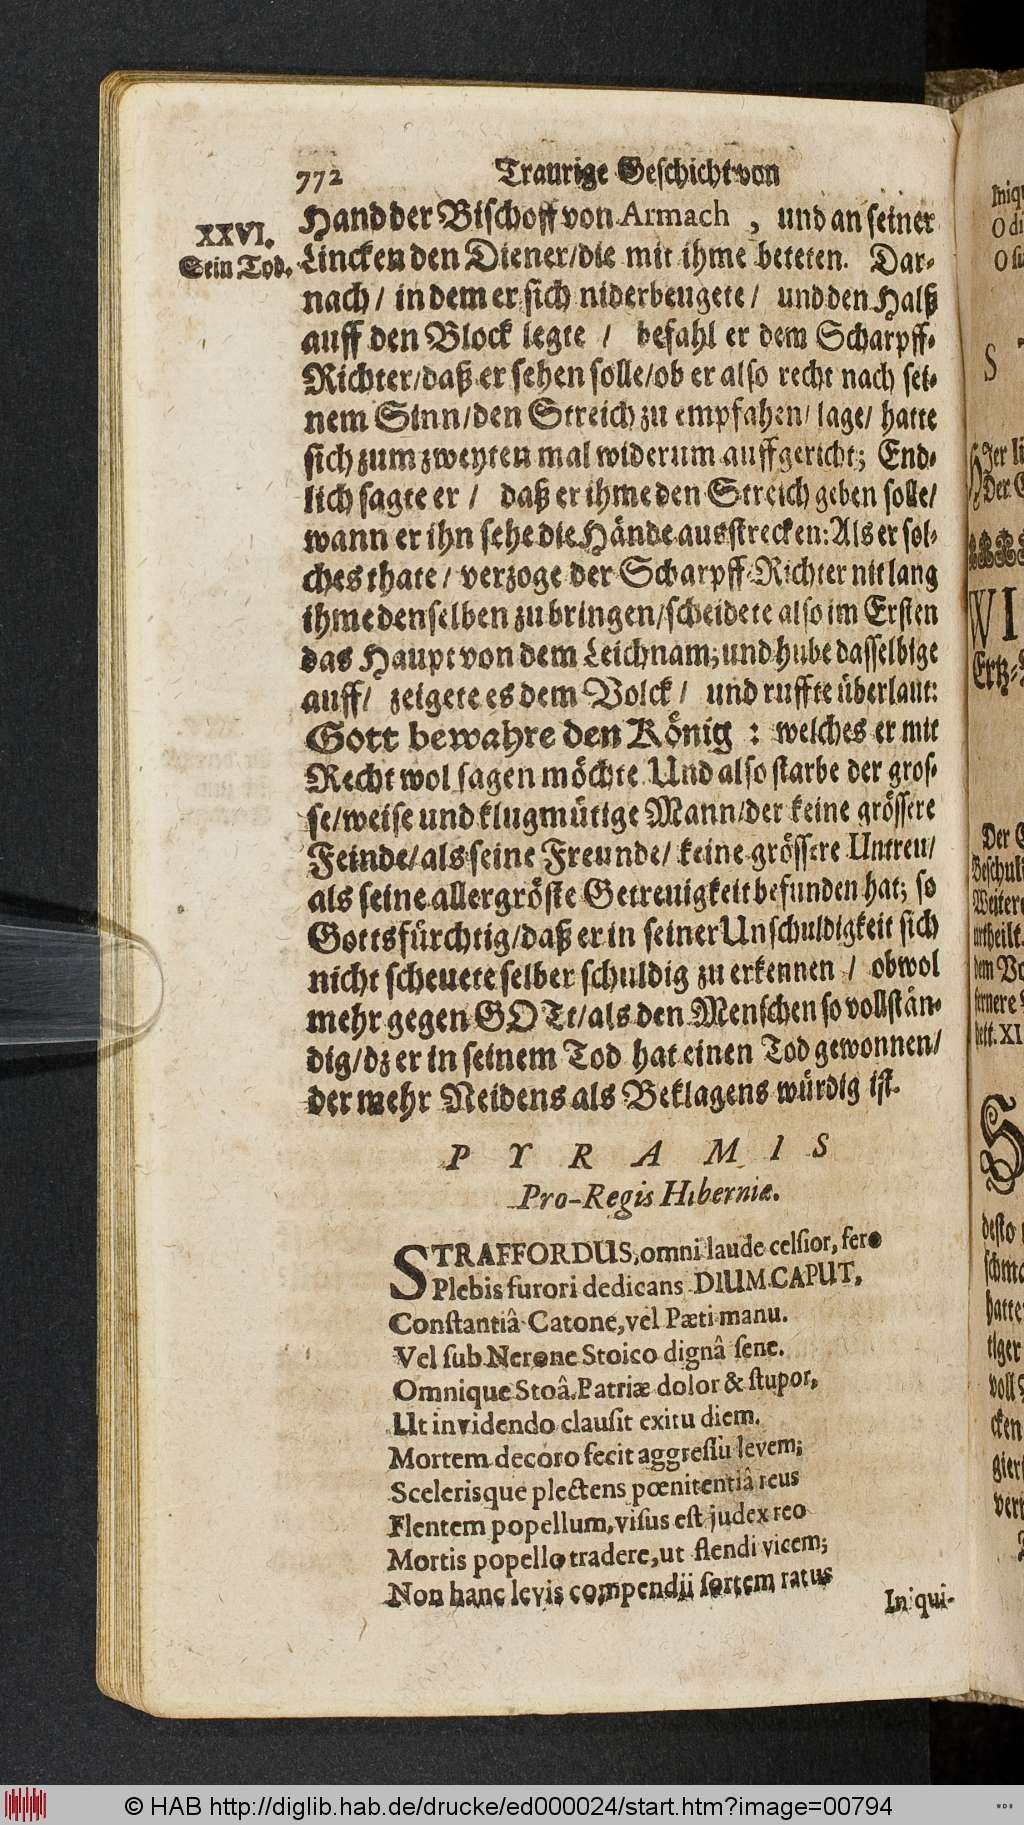 772 Traurige Geschicht von
XXVI.
Sein Tod.
Hand der Bischoff von Armach , und an seiner
Lincken den Diener/die mit ihme beteten. Dar-
nach / in dem er sich niderbeugete / und den Halß
auff den Block legte / befahl er dem Scharpff-
Richter/daß er sehen solle/ob er also recht nach sei-
nem Sinn/den Streich zu empfahen/ lage/ hatte
sich zum zweyten mal widerum auffgericht; End-
lich sagte er / daß er ihme den Streich geben solle/
wann er ihn sehe die Hände ausstrecken: Als er sol-
ches thate / verzoge der Scharpff-Richter nit lang
ihme denselben zu bringen/scheidete also im Ersten
das Haupt von dem Leichnam; und hube dasselbige
auff/ zeigete es dem Volck / und ruffte überlaut:
Gott bewahre den König : welches er mit
Recht wol sagen möchte. Und also starbe der gros-
se/weise und klugmütige Mann/der keine grössere
Feinde/als seine Freunde/ keine grössere Untreu/
als seine allergröste Getreuigkeit befunden hat; so
Gottsfürchtig/daß er in seiner Unschuldigkeit sich
nicht scheuete selber schuldig zu erkennen / obwol
mehr gegen GOTt/als den Menschen so vollstän-
dig/dz er in seinem Tod hat einen Tod gewonnen/
der mehr Neidens als Beklagens würdig ist.
PYRAMIS
Pro-Regis Hiberniæ.
STRAFFORDUS,omni laude celsior, fero
Plebis furori dedicans DIUM CAPUT,
Constantiâ Catone,vel Pæti manu.
Vel sub Nerone Stoico dignâ sene.
Omnique Stoâ.Patriæ dolor & stupor,
Ut invidendo clausit exitu diem.
Mortem decoro fecit aggressu levem;
Scelerisque plectens pœnitentiâ reus
Flentem popellum,visus est judex reo
Mortis popello tradere,ut flendi vicem;
Non hanc levis compendii sortem ratus
In qui-
Iniqu
O di
O su
S
Hier li
Der G
WI
Ertz-
Der G
Beschul
Weiter
urtheilt
dem Vo
fernere
dett. XI
S
desto
schme
hatte
tiger
voll
cken
gier
ver
© HAB http://diglib.hab.de/drucke/ed000024/start.htm?image=00794